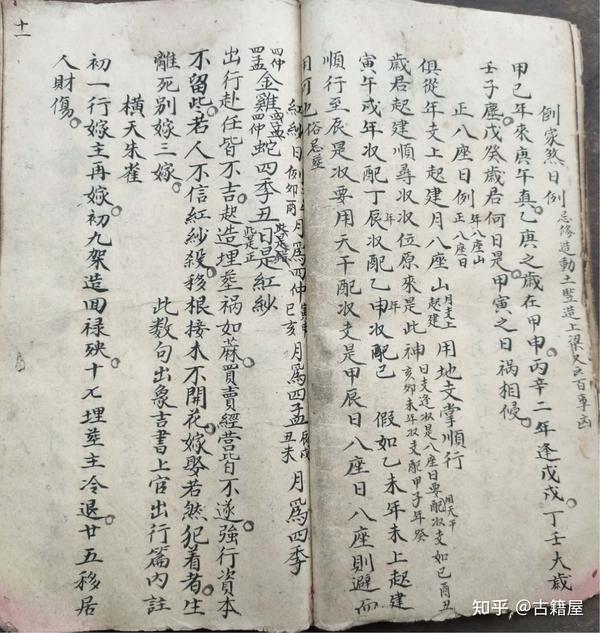 倒家煞日例 忌修造動土豎造上梁又云百事凶
甲己年來庚午真。乙庚之歲在甲申。丙辛二年逢戊戌。丁壬大歲
壬子廛。戊癸歲君何日是。甲寅之日禍相侵。
正八座日例 年八座山 正八座日
俱從年支上起建月八座山 月支上起建 用地支掌順行 用天干
歲君起建順尋收收位原來是此神 日支逢收是八座日要配收支如己酉丑 亥卯未年收支配甲子年癸
寅午戌年收配丁辰年收配乙申年收配己 假如乙未年未上起建
順行至辰是收要用天干配收支是甲辰日八座日八座則避而
用可也 俗忌葬
紅紗日例 卯酉 月爲四仲 寅申 巳亥 月爲四孟 辰戌 丑未 月爲四季
四仲 四孟 金雞 四孟 四仲 蛇四季丑日是紅紗 此是錯 此是正
出行赴任皆不吉。起造埋葬禍如蔴買賣經營皆不遂。強行資本
不留些。君人不信紅紗殺。移根接木不開花。嫁娶若然犯着者。生
離死別嫁三嫁。 此數句出象吉書上官出行篇内註
橫天朱雀
初一行嫁主再嫁。初九架造回祿殃。十七埋葬主冷退。廿五移居
人財傷。
十一
知乎 @古籍屋